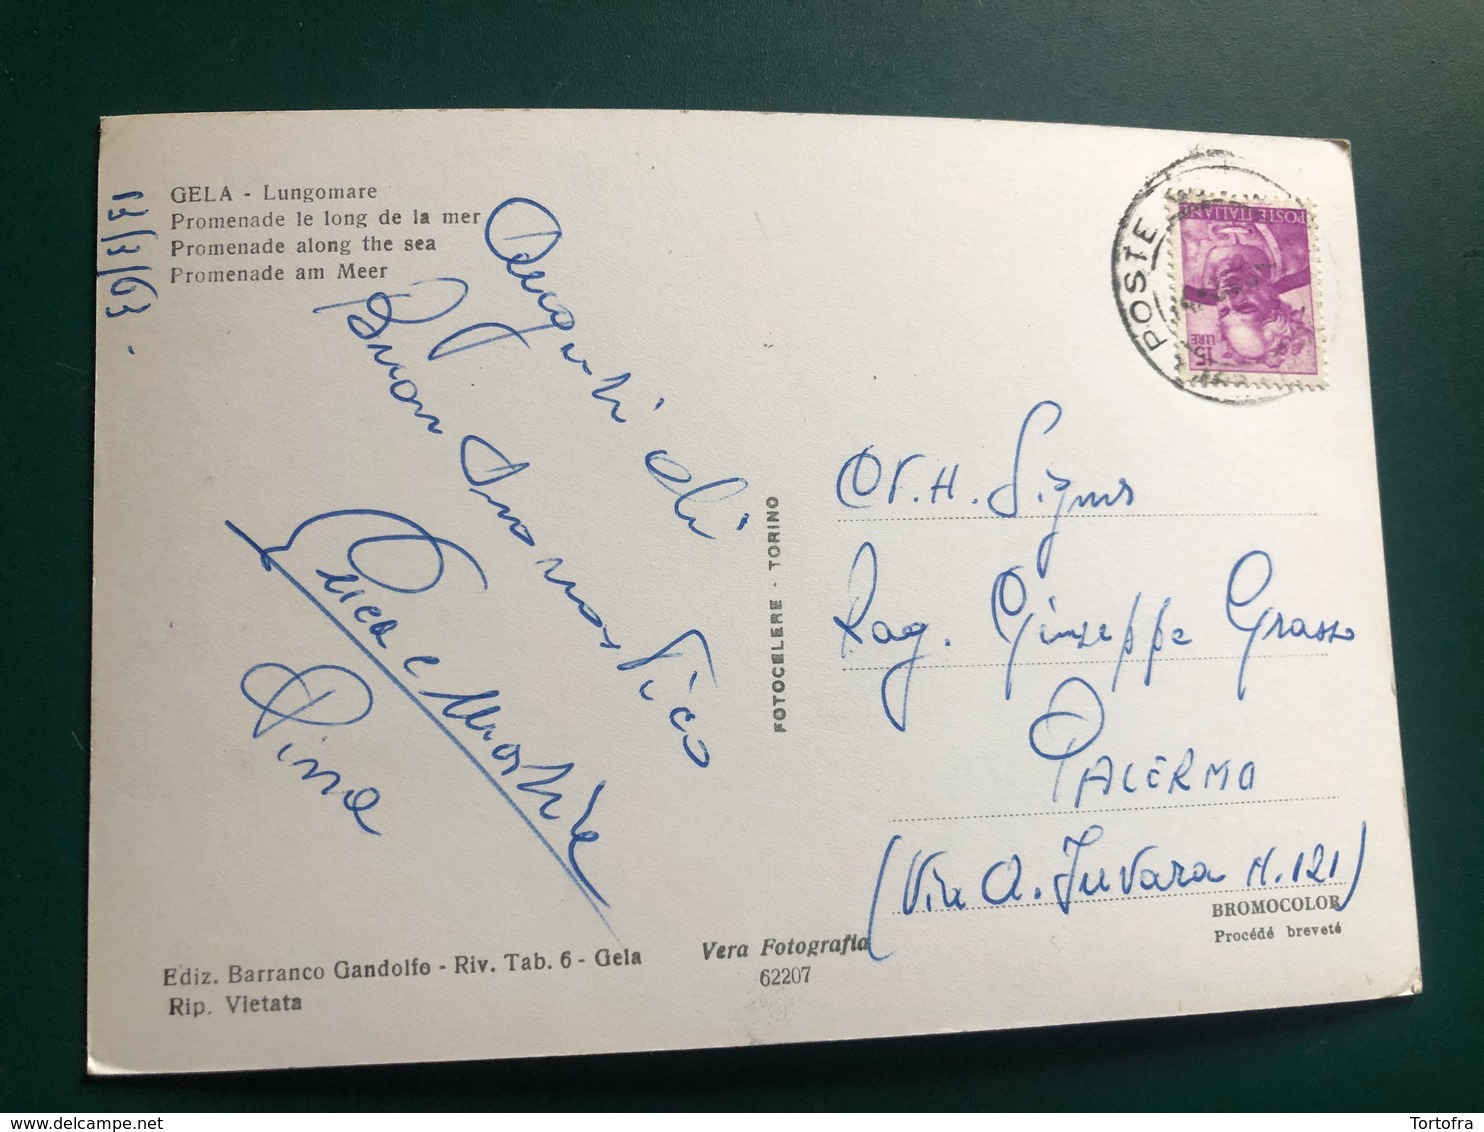 GELA - Lungomare
Promenade le long de la mer
Promenade along the sea
Promenade am Meer
17/3/63.
Auguri di
Buon Onomastico
Luca e
Pina
FOTOCELERE - TORINO
POSTE
POSTE ITALIANE
15
LIRE
Signor
Rag. Giuseppe Grasso
PALERMO
(Via A. Juvara N. 121)
BROMOCOLOR
Procédé breveté
Ediz. Barranco Gandolfo - Riv. Tab. 6 - Gela
Rip. Vietata
Vera Fotografia
62207
Tortofra